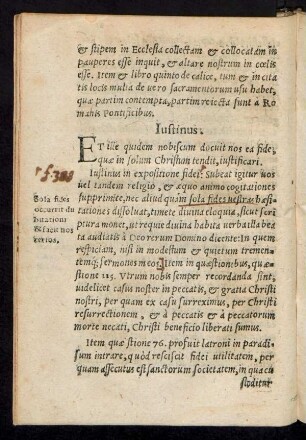 & stipem in Ecclesia collectam & collocatam in
pauperes esse inquit, & altare nostrum in cœlis
esse. Item & libro quinto de calice, tum & in cita
tis locis multa de uero sacramentorum usu habet,
quæ partim contempta, partim reiecta sunt à Ro
manis Pontificibus.
Iustinus.
ET ille quidem nobiscum docuit nos ea fide,
quæ in solum Christum tendit, iustificari.
Iustinus in expositione fidei: Subeat igitur uos
uel tandem religio, & æquo animo cogitationes
supprimite, nec aliud quàm sola fides uestras hæsi
tationes dissoluat, timete diuina eloquia, sicut scri
ptura monet, utreque diuina habita uerba illa bea
ta audiatis à Deorum Domino dicente: In quem
respiciam, nisi in modestum & quietum tremen-
temq́; sermones meos? Item in quæstionibus, quæ-
stione 115. Vtrum nobis semper recordanda sint,
uidelicet casus noster in peccatis, & gratia Christi
nostri, per quam ex casu surreximus, per Christi
resurrectionem, & à peccatis & à peccatorum
morte necati, Christi beneficio liberati sumus.
Item quæstione 76. profuit latroni in paradi
sum intrare, quòd resciscit fidei utilitatem, per
quam assecutus est sanctorum societatem, in qua cu
stoditur
Sola fides
occurrit du
bitationi
& facit nos
certos.